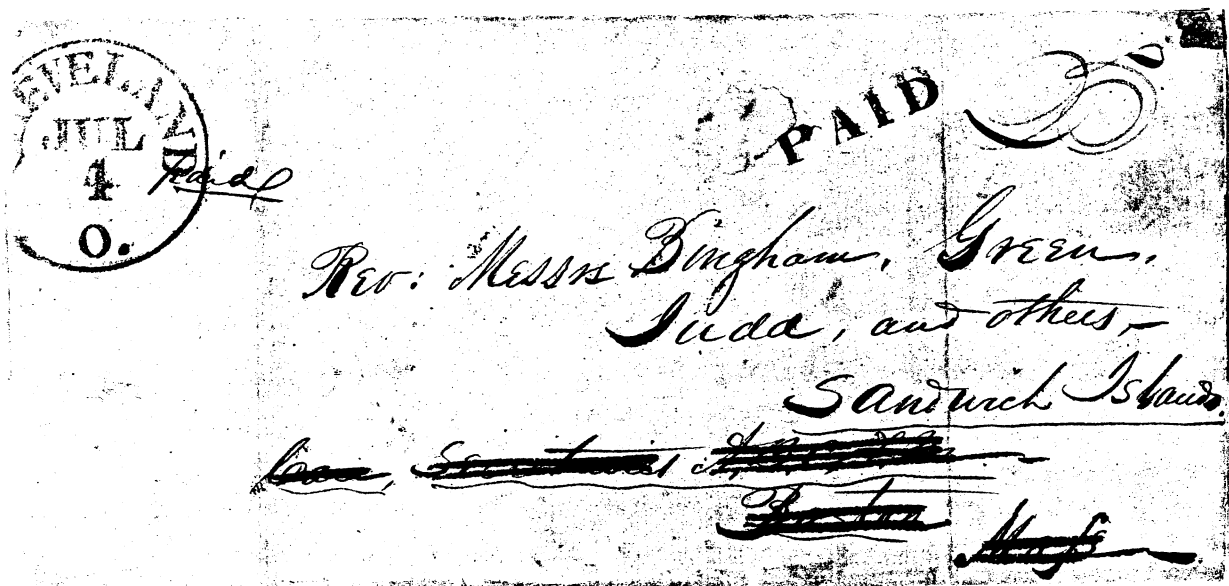 CLEVELAND
JUL
4
O.
Paid
PAID
Rev: Messrs Bingham, Green,
Judd, and others,—
Sandwich Islands.
Care, Secretaries
Boston
Mass